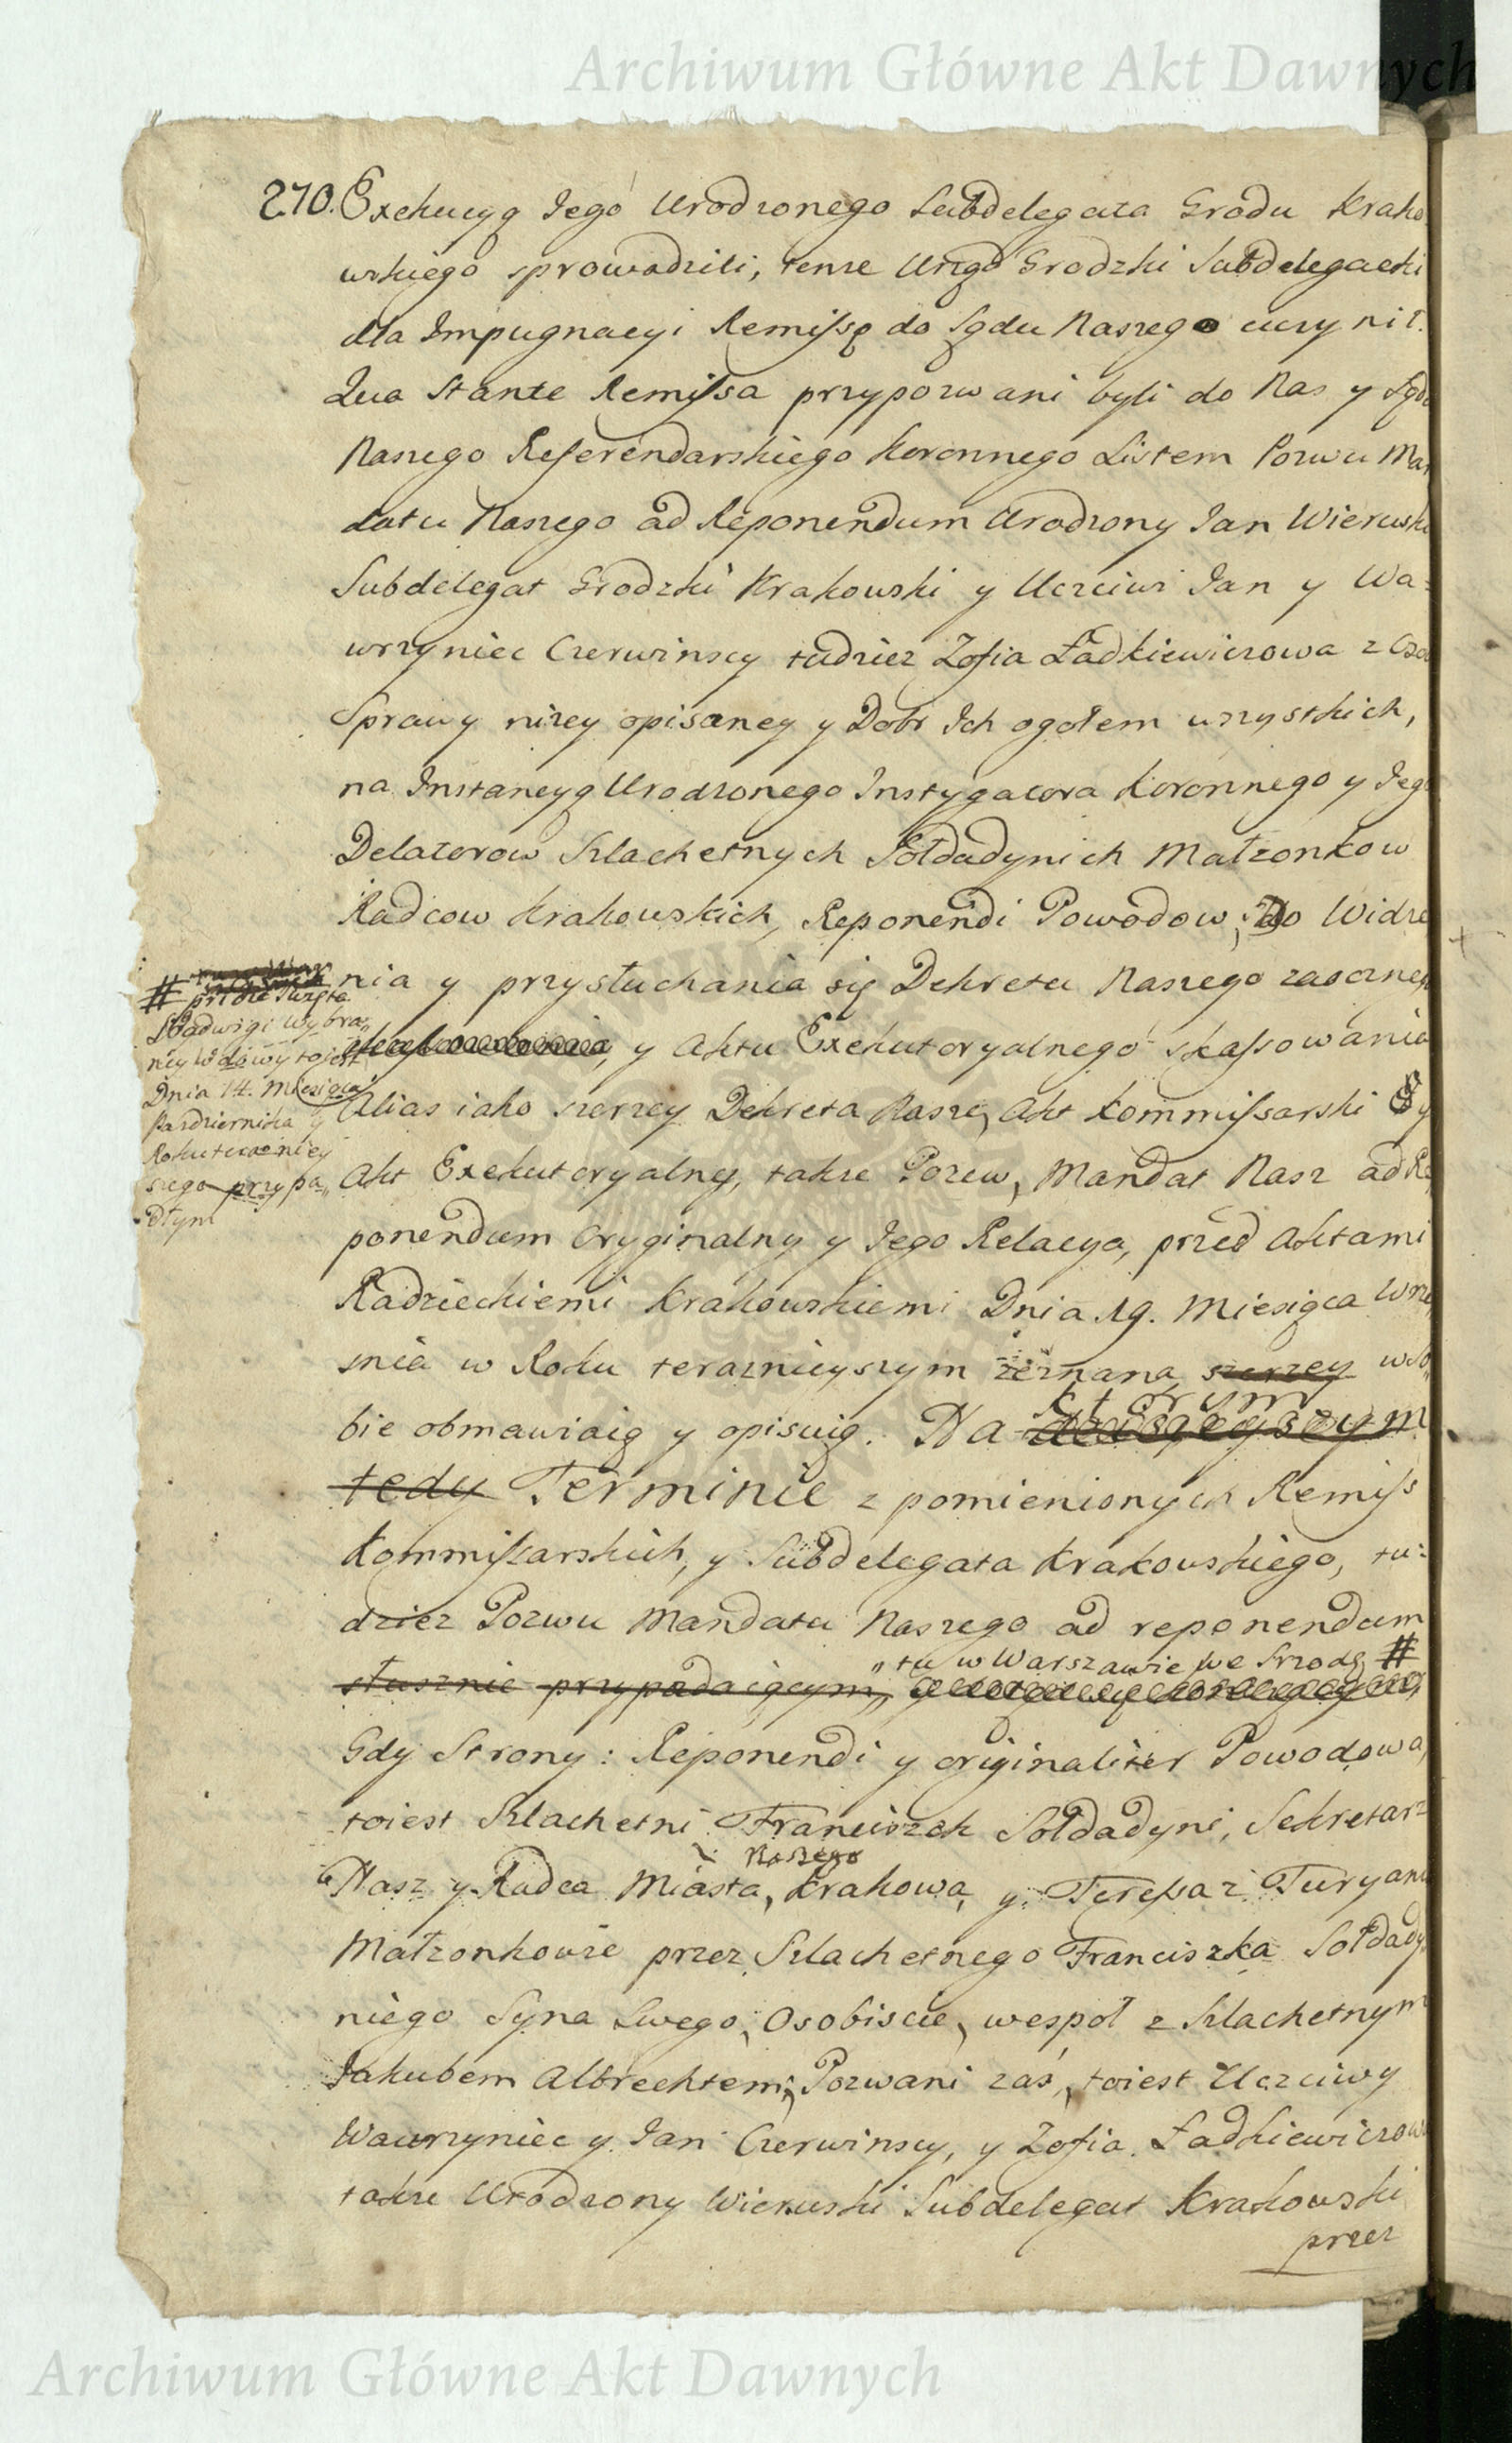 Archiwum Główne Akt Dawnych
270. Exekucyą Jego Urodzonego Subdelegata Grodu Krako
wskiego sprowadzili, tenze Urząd Grodzki Subdelegacki
dla Impugnacyi Remissę do Sądu Naszego uczynił.
Qua Stante Remissa przypozwani byli do Nas y Sądu
Naszego Referendarskiego Koronnego Listem Pozwu Man
datu Naszego ad Reponendum Urodzony Jan Wieruski
Subdelegat Grodzki Krakowski y Uczciwi Jan y Wa=
wrzyniec Czerwinscy tudziez Zofia Ładkiewiczowa z Osob
Sprawy nizey opisaney y Dobr Ich ogołem wszystkich,
na Instancyą Urodzonego Instygatora Koronnego y Jego
Delatorow Szlachetnych Sołdadynich Małzonkow
Radcow Krakowskich, Reponendi Powodow, Do Widze
nia y przysłuchania się Dekretu Naszego zaocznego
y Aktu Exekutoryalnego skassowania
Alias iako szerzey Dekreta Nasze, Akt Kommissarski y
Akt Exekutoryalny, takze Pozew, Mandat Nasz ad Re
ponendum Oryginalny y Jego Relacya, przed Aktami
Radzieckiemi Krakowskiemi Dnia 19. Miesiąca Wrze
snia w Roku teraznieyszym zeznana szerzey wso
bie obmawiaią y opisuią. Na dzisieyszym
którym
tedy Terminie z pomienionych Remiss
Kommissarskich, y Subdelegata Krakowskiego, tu=
dziez Pozwu Mandatu Naszego ad reponendum
tu w Warszawie we Srzodę #
słusznie przypadaiącym,
# przed Swięta
Jadwigi wybra
ney Wdowy toiest
Dnia 14. Miesiąca
Pazdziernika y
Roku terazniey
szego przypa
dłym
Gdy Strony: Reponendi y originaliter Powodowa,
toiest Szlachetni Franciszek Sołdadyni, Sekretarz
Naszego
Nasz y Radca Miasta, Krakowa, y Teressa z Turyani
Małzonkowie przez Szlachetnego Franciszka Sołdady
niego Syna Swego, Osobiscie, wespoł z Szlachetnym
Jakubem Albrechtem, Pozwani zas, toiest Uczciwy
Wawrzyniec y Jan Czerwinscy, y Zofia Ładkiewiczowa
takze Urodzony Wieruski Subdelegat Krakowski
przez
Archiwum Główne Akt Dawnych